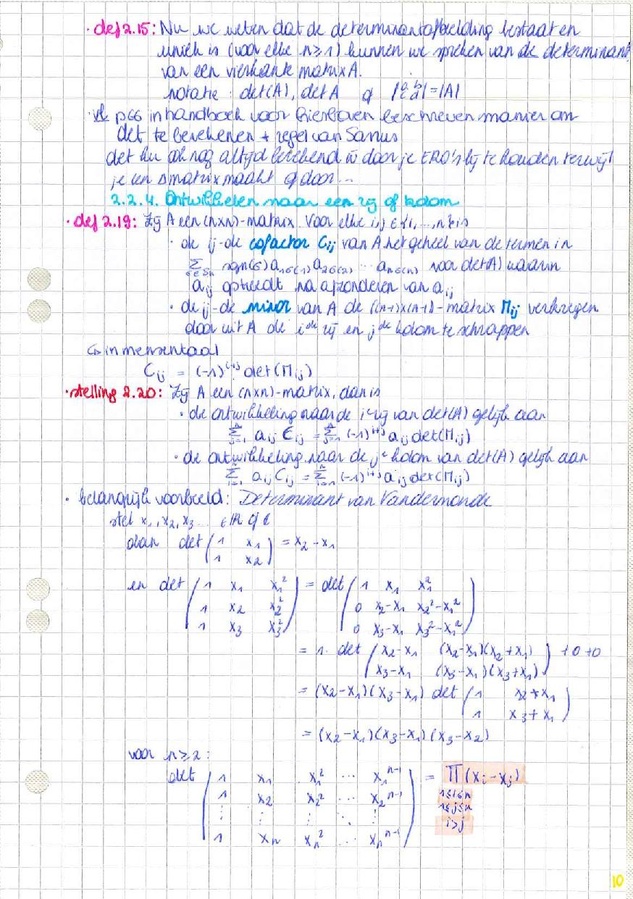 · def 2.15: Nu we weten dat de determinantafbeelding bestaat en
uniek is (voor elke n≥1) kunnen we spreken van de determinant
van een vierkante matrix A.
notatie: det(A), det A of |a b; c d| = |A|
p66 in handboek voor hierboven beschreven manier om
det te berekenen + regel van Sarrus
det kan ook nog altijd berekend w door je ERO's bij te houden terwijl
je een Δmatrix maakt of door...
2.2.4. Ontwikkelen naar een rij of kolom
· def 2.19: Zij A een (n×n)-matrix. Voor elke i,j ∈ {1,...,n} is
· de ij-de cofactor Cij van A het geheel van de termen in
∑σ∈Sn sgn(σ) a1σ(1) a2σ(2) ... anσ(n) voor det(A) waarin
aij optreedt na afzonderen van aij
· de ij-de minor van A de (n-1)×(n-1)-matrix Mij verkregen
door uit A de i de rij en j de kolom te schrappen
Cij = (-1)^i+j det(Mij)
· stelling 2.20: Zij A een (n×n)-matrix, dan is
· de ontwikkeling naar de i e rij van det(A) gelijk aan
∑j=1^n aij Cij = ∑j=1^n (-1)^i+j aij det(Mij)
· de ontwikkeling naar de j e kolom van det(A) gelijk aan
∑i=1^n aij Cij = ∑i=1^n (-1)^i+j aij det(Mij)
· belangrijk voorbeeld: Determinant van Vandermonde
stel x1, x2, x3 ... ∈ ℝ of ℂ
dan det (1 x1; 1 x2) = x2 - x1
en det (1 x1 x1²; 1 x2 x2²; 1 x3 x3²) = det (1 x1 x1²; 0 x2-x1 x2²-x1²; 0 x3-x1 x3²-x1²)
= 1 · det (x2-x1 (x2-x1)(x2+x1); x3-x1 (x3-x1)(x3+x1)) + 0 + 0
= (x2-x1)(x3-x1) det (1 x2+x1; 1 x3+x1)
= (x2-x1)(x3-x1)(x3-x2)
voor n≥2:
det (1 x1 x1² ... x1^n-1; 1 x2 x2² ... x2^n-1; ⋮ ⋮ ⋮ ⋱ ⋮; 1 xn xn² ... xn^n-1) = ∏ (xi - xj)
1≤i≤n
1≤j≤n
i>j
10